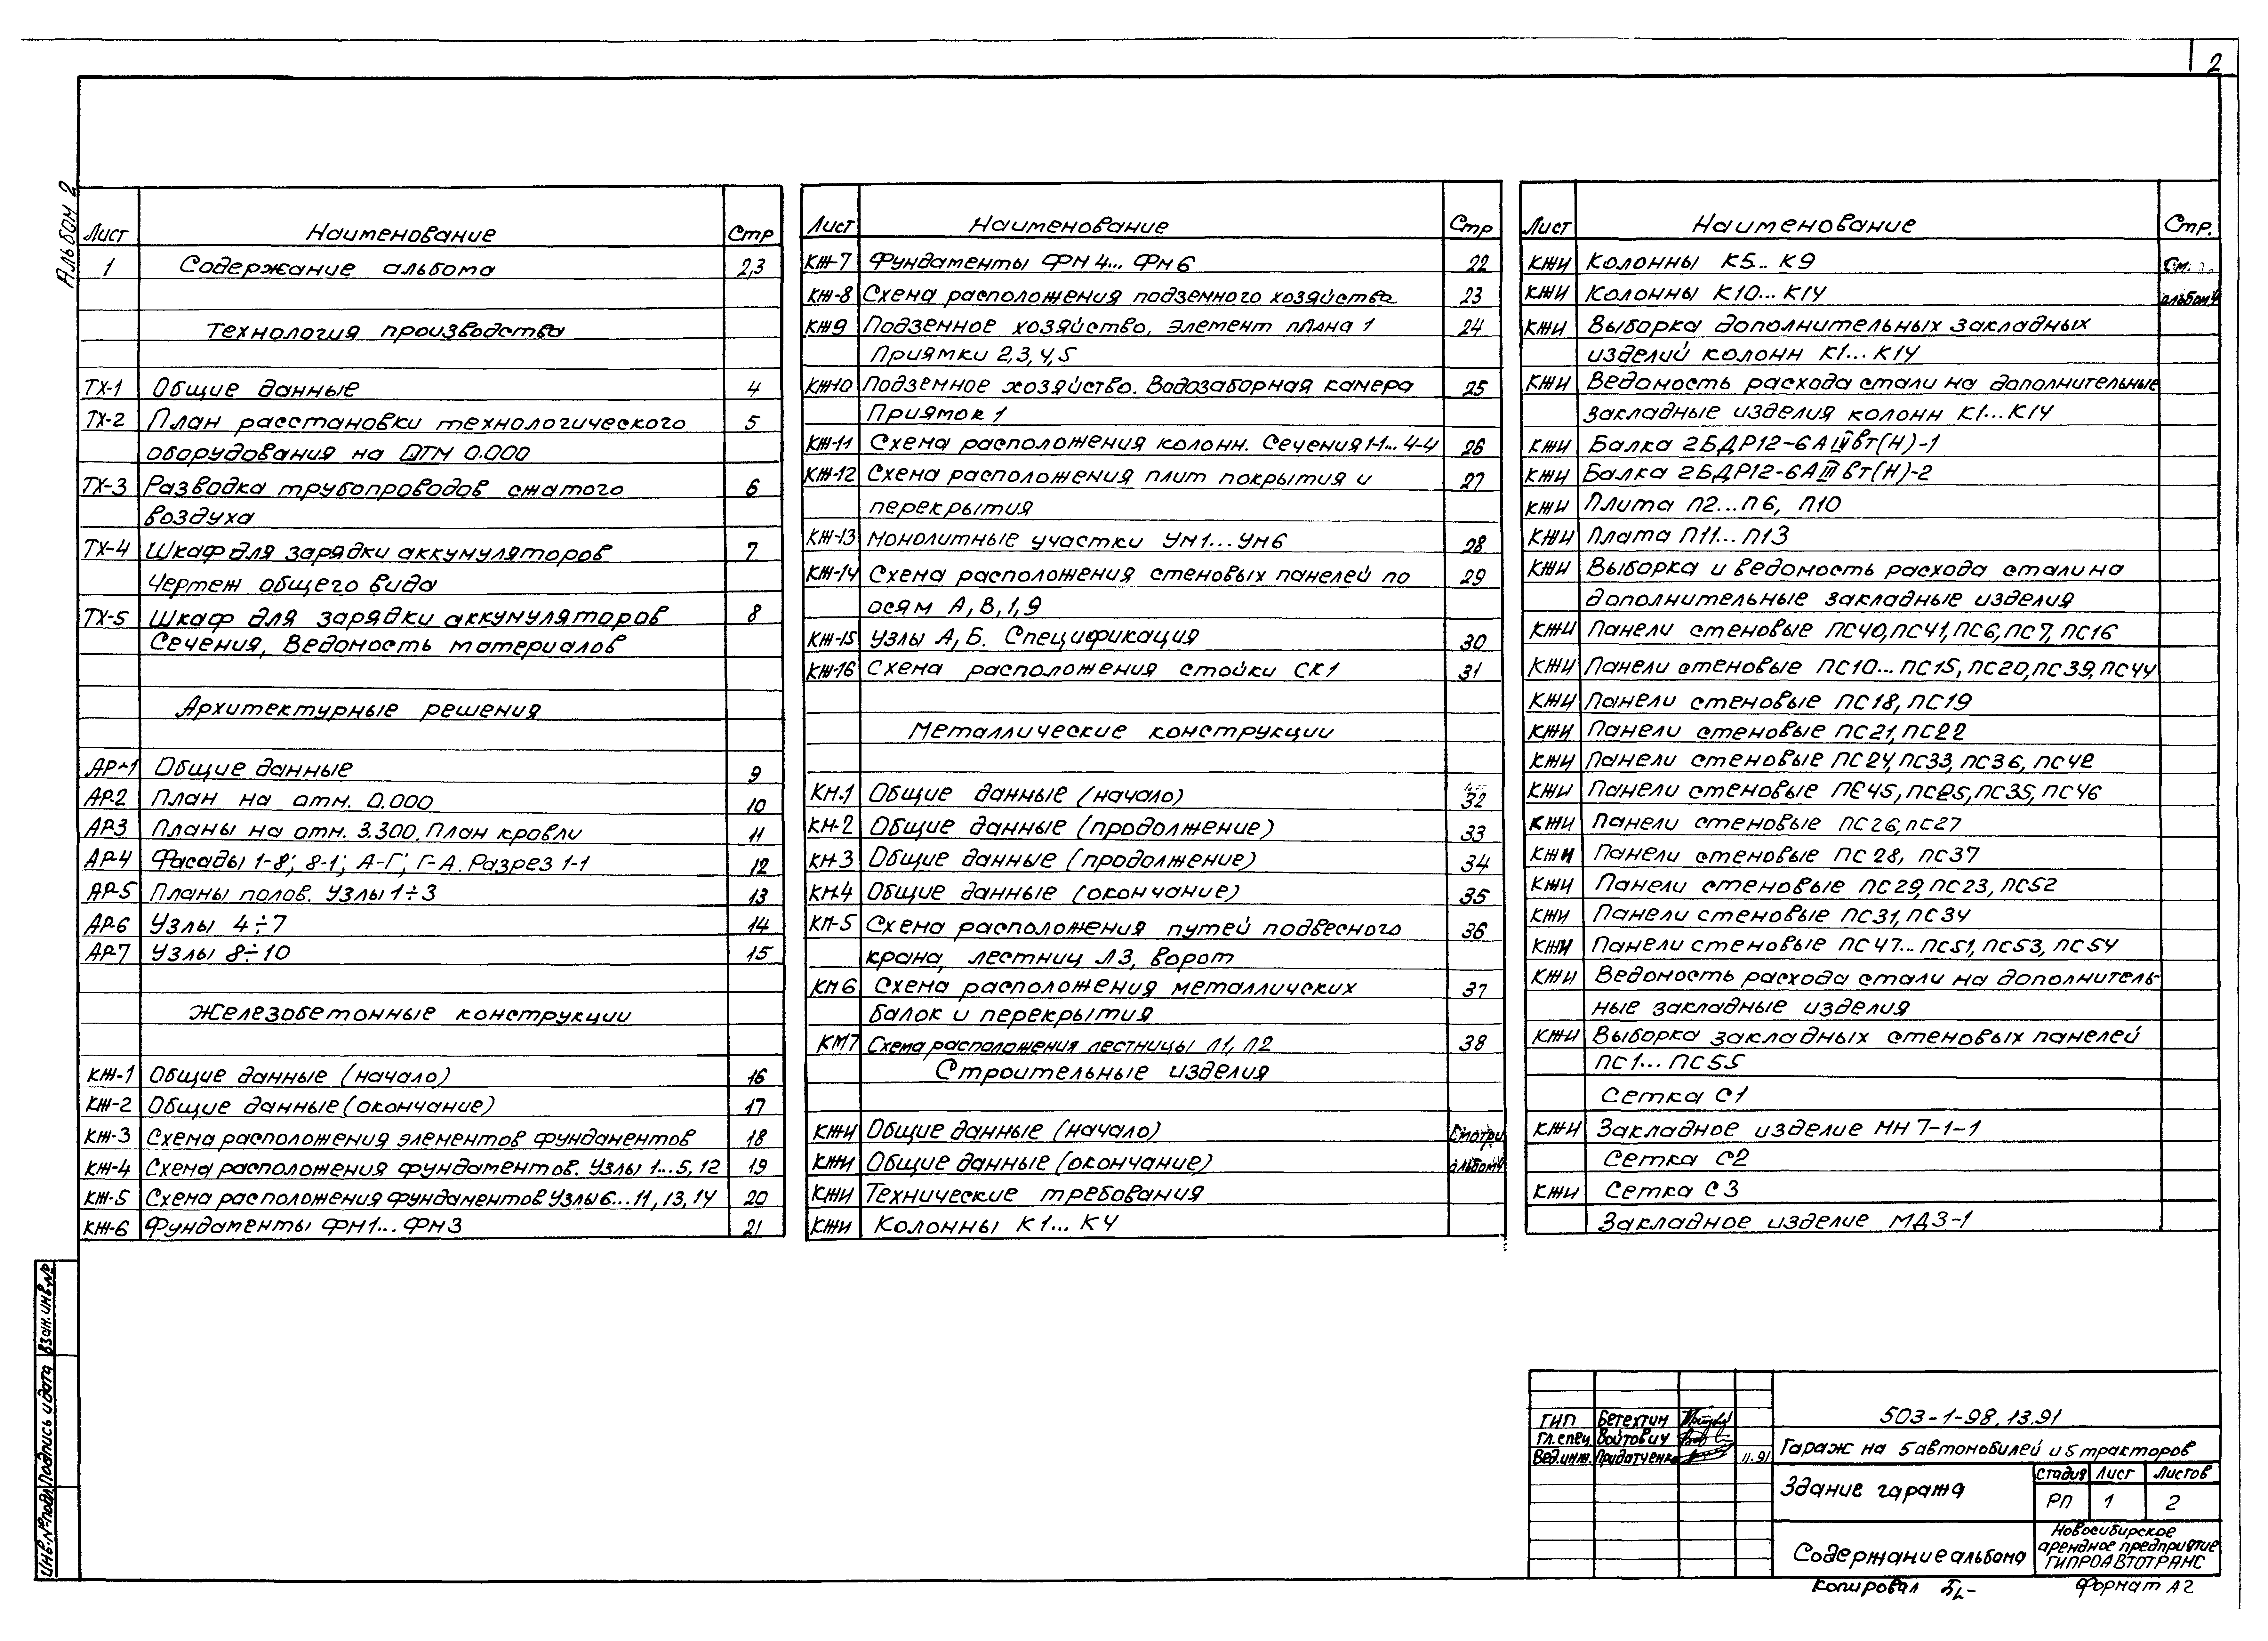 2
Альбом 2
Лист Наименование Стр
1 Содержание альбома 2,3
Технология производства
ТХ-1 Общие данные 4
ТХ-2 План расстановки технологического 5
оборудования на ОТМ 0.000
ТХ-3 Разводка трубопроводов сжатого 6
воздуха
ТХ-4 Шкаф для зарядки аккумуляторов 7
Чертеж общего вида
ТХ-5 Шкаф для зарядки аккумуляторов 8
Сечения, Ведомость материалов
Архитектурные решения
АР-1 Общие данные 9
АР-2 План на отм. 0.000 10
АР-3 Планы на отм. 3.300. План кровли 11
АР-4 Фасады 1-8; 8-1; А-Г; Г-А. Разрез 1-1 12
АР-5 Планы полов. Узлы 1÷3 13
АР-6 Узлы 4÷7 14
АР-7 Узлы 8÷10 15
Железобетонные конструкции
КЖ-1 Общие данные (начало) 16
КЖ-2 Общие данные (окончание) 17
КЖ-3 Схема расположения элементов фундаментов 18
КЖ-4 Схема расположения фундаментов. Узлы 1...5, 12 19
КЖ-5 Схема расположения фундаментов Узлы 6...11, 13, 14 20
КЖ-6 Фундаменты ФМ1... ФМ3 21
Лист Наименование Стр
КЖ-7 Фундаменты ФМ4... ФМ6 22
КЖ-8 Схема расположения подземного хозяйства 23
КЖ9 Подземное хозяйство, элемент плана 1 24
Приямки 2,3,4,5
КЖ-10 Подземное хозяйство. Водозаборная камера 25
Приямок 1
КЖ-11 Схема расположения колонн. Сечения 1-1... 4-4 26
КЖ-12 Схема расположения плит покрытия и 27
перекрытия
КЖ-13 Монолитные участки УМ1...УМ6 28
КЖ-14 Схема расположения стеновых панелей по 29
осям А, В, 1, 9
КЖ-15 Узлы А, Б. Спецификация 30
КЖ-16 Схема расположения стойки СК1 31
Металлические конструкции
КМ-1 Общие данные (начало) 32
КМ-2 Общие данные (продолжение) 33
КМ-3 Общие данные (продолжение) 34
КМ-4 Общие данные (окончание) 35
КМ-5 Схема расположения путей подвесного 36
крана, лестниц Л3, ворот
КМ6 Схема расположения металличских 37
балок и перекрытия
КМ7 Схема расположения лестницы Л1, Л2 38
Строительные изделия
КЖИ Общие данные (начало) Смотри
КЖИ Общие данные (окончание) альбом 4
КЖИ Технические требования
КЖИ Колонны К1... К4
Лист Наименование Стр.
КЖИ Колонны К5... К9 См.
КЖИ Колонны К10... К14 альбом 4
КЖИ Выборка дополнительных закладных
изделий колонн К1... К14
КЖИ Ведомость расхода стали на дополнительные
закладные изделия колонн К1...К14
КЖИ Балка 2БДР12-6АIIIвт(Н)-1
КЖИ Балка 2БДР12-6АIIIвт(Н)-2
КЖИ Плита П2...П6, П10
КЖИ Плата П11... П13
КЖИ Выборка и ведомость расхода стали на
дополнительные закладные изделия
КЖИ Панели стеновые ПС40, ПС41, ПС6, ПС7, ПС16
КЖИ Панели стеновые ПС10... ПС15, ПС20, ПС39, ПС44
КЖИ Панели стеновые ПС18, ПС19
КЖИ Панели стеновые ПС21, ПС22
КЖИ Панели стеновые ПС24, ПС33, ПС36, ПС42
КЖИ Панели стеновые ПС45, ПС25, ПС35, ПС46
КЖИ Панели стеновые ПС26, ПС27
КЖИ Панели стеновые ПС28, ПС37
КЖИ Панели стеновые ПС29, ПС23, ПС52
КЖИ Панели стеновые ПС31, ПС34
КЖИ Панели стеновые ПС47... ПС51, ПС53, ПС54
КЖИ Ведомость расхода стали на дополнитель-
ные закладные изделия
КЖИ Выборка закладных стеновых панелей
ПС1... ПС55
Сетка С1
КЖИ Закладное изделие МН7-1-1
Сетка С2
КЖИ Сетка С3
Закладное изделие МД3-1
Инв.№ подл. Подпись и дата Взам. инв.№
ГИП Бетехтин
Гл. спец. Войтович
Вед. инж. Придатченко 11.91
503-1-98.13.91
Гараж на 5 автомобилей и 5 тракторов
Здание гаража
Стадия Лист Листов
РП 1 2
Содержание альбома
Новосибирское
арендное предприятие
ГИПРОАВТОТРАНС
Копировал
Формат А2